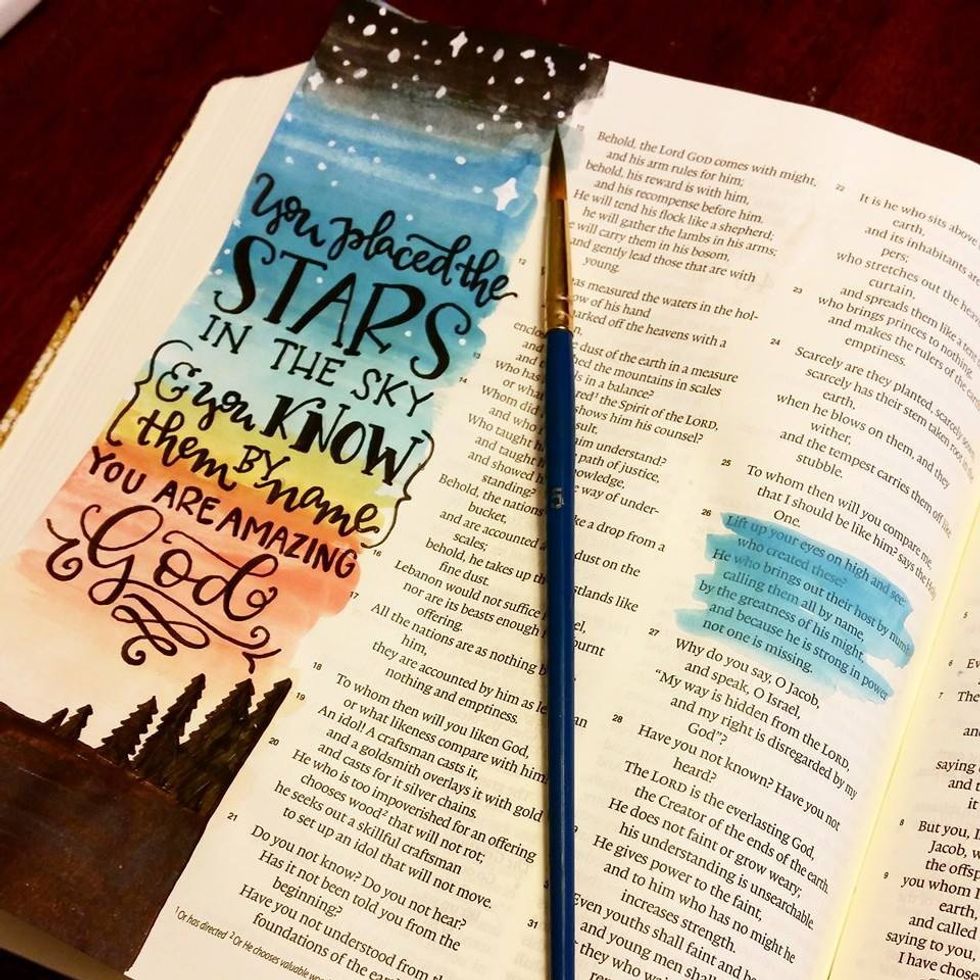 You placed the
STARS
IN THE SKY
& you KNOW
them BY name
YOU ARE AMAZING
God
10
Behold, the Lord GOD comes with might,
and his arm rules for him;
behold, his reward is with him,
and his recompense before him.
He will tend his flock like a shepherd;
he will gather the lambs in his arms;
will carry them in his bosom,
and gently lead those that are with
young.
12
as measured the waters in the hol-
ow of his hand
arked off the heavens with a
enclo
dust of the earth in a measure
and the mountains in scales
in a balance?
13
Who has red¹ the Spirit of the LORD,
or what shows him his counsel?
14
Whom did sult,
and who im understand?
Who taught path of justice,
and taught knowledge,
and showed way of under-
standing?
Behold, the nations ke a drop from a
bucket,
and are accounted dust on the
scales;
behold, he takes up th stlands like
fine dust.
16
Lebanon would not suffice el,
nor are its beasts enough burnt
offering.
17
All the nations are as nothing b
him,
they are accounted by him as le an
nothing and emptiness.
18
To whom then will you liken God,
or what likeness compare with him
19
An idol! A craftsman casts it,
and a goldsmith overlays it with gold
and casts for it silver chains.
20
He who is too impoverished for an offering
chooses wood² that will not rot;
he seeks out a skillful craftsman
to set up an idol that will not move.
21
Do you not know? Do you not hear?
Has it not been told you from the
beginning?
Have you not understood from th
foundations of the ear
¹ Or has directed ² Or He chooses valuable wo
22
It is he who sits above
earth,
and its inhabitants
pers;
who stretches out the hea
curtain,
and spreads them like a ten
23
who brings princes to nothing,
and makes the rulers of the
emptiness.
24
Scarcely are they planted, scarcely
scarcely has their stem taken root
when he blows on them, and they
wither,
and the tempest carries them off like
stubble.
25
To whom then will you compare me,
that I should be like him? says the Holy
One.
26
Lift up your eyes on high and see:
who created these?
He who brings out their host by numb
calling them all by name,
by the greatness of his might,
and because he is strong in power
not one is missing.
27
Why do you say, O Jacob,
and speak, O Israel,
"My way is hidden from the LORD,
and my right is disregarded by my
God"?
28
Have you not known? Have you not
heard?
The LORD is the everlasting God,
the Creator of the ends of the earth.
He does not faint or grow weary;
his understanding is unsearchable.
He gives power to the faint,
and to him who has no might he
increases strength.
Even youths shall faint and be
and young men shall
31
they who wa
ren
5
6
Ev
7
The
an
saying
and t
it
8
But you, I
Jacob, w
the offsp
9
you whom I
earth,
and called
saying to you
I have chose